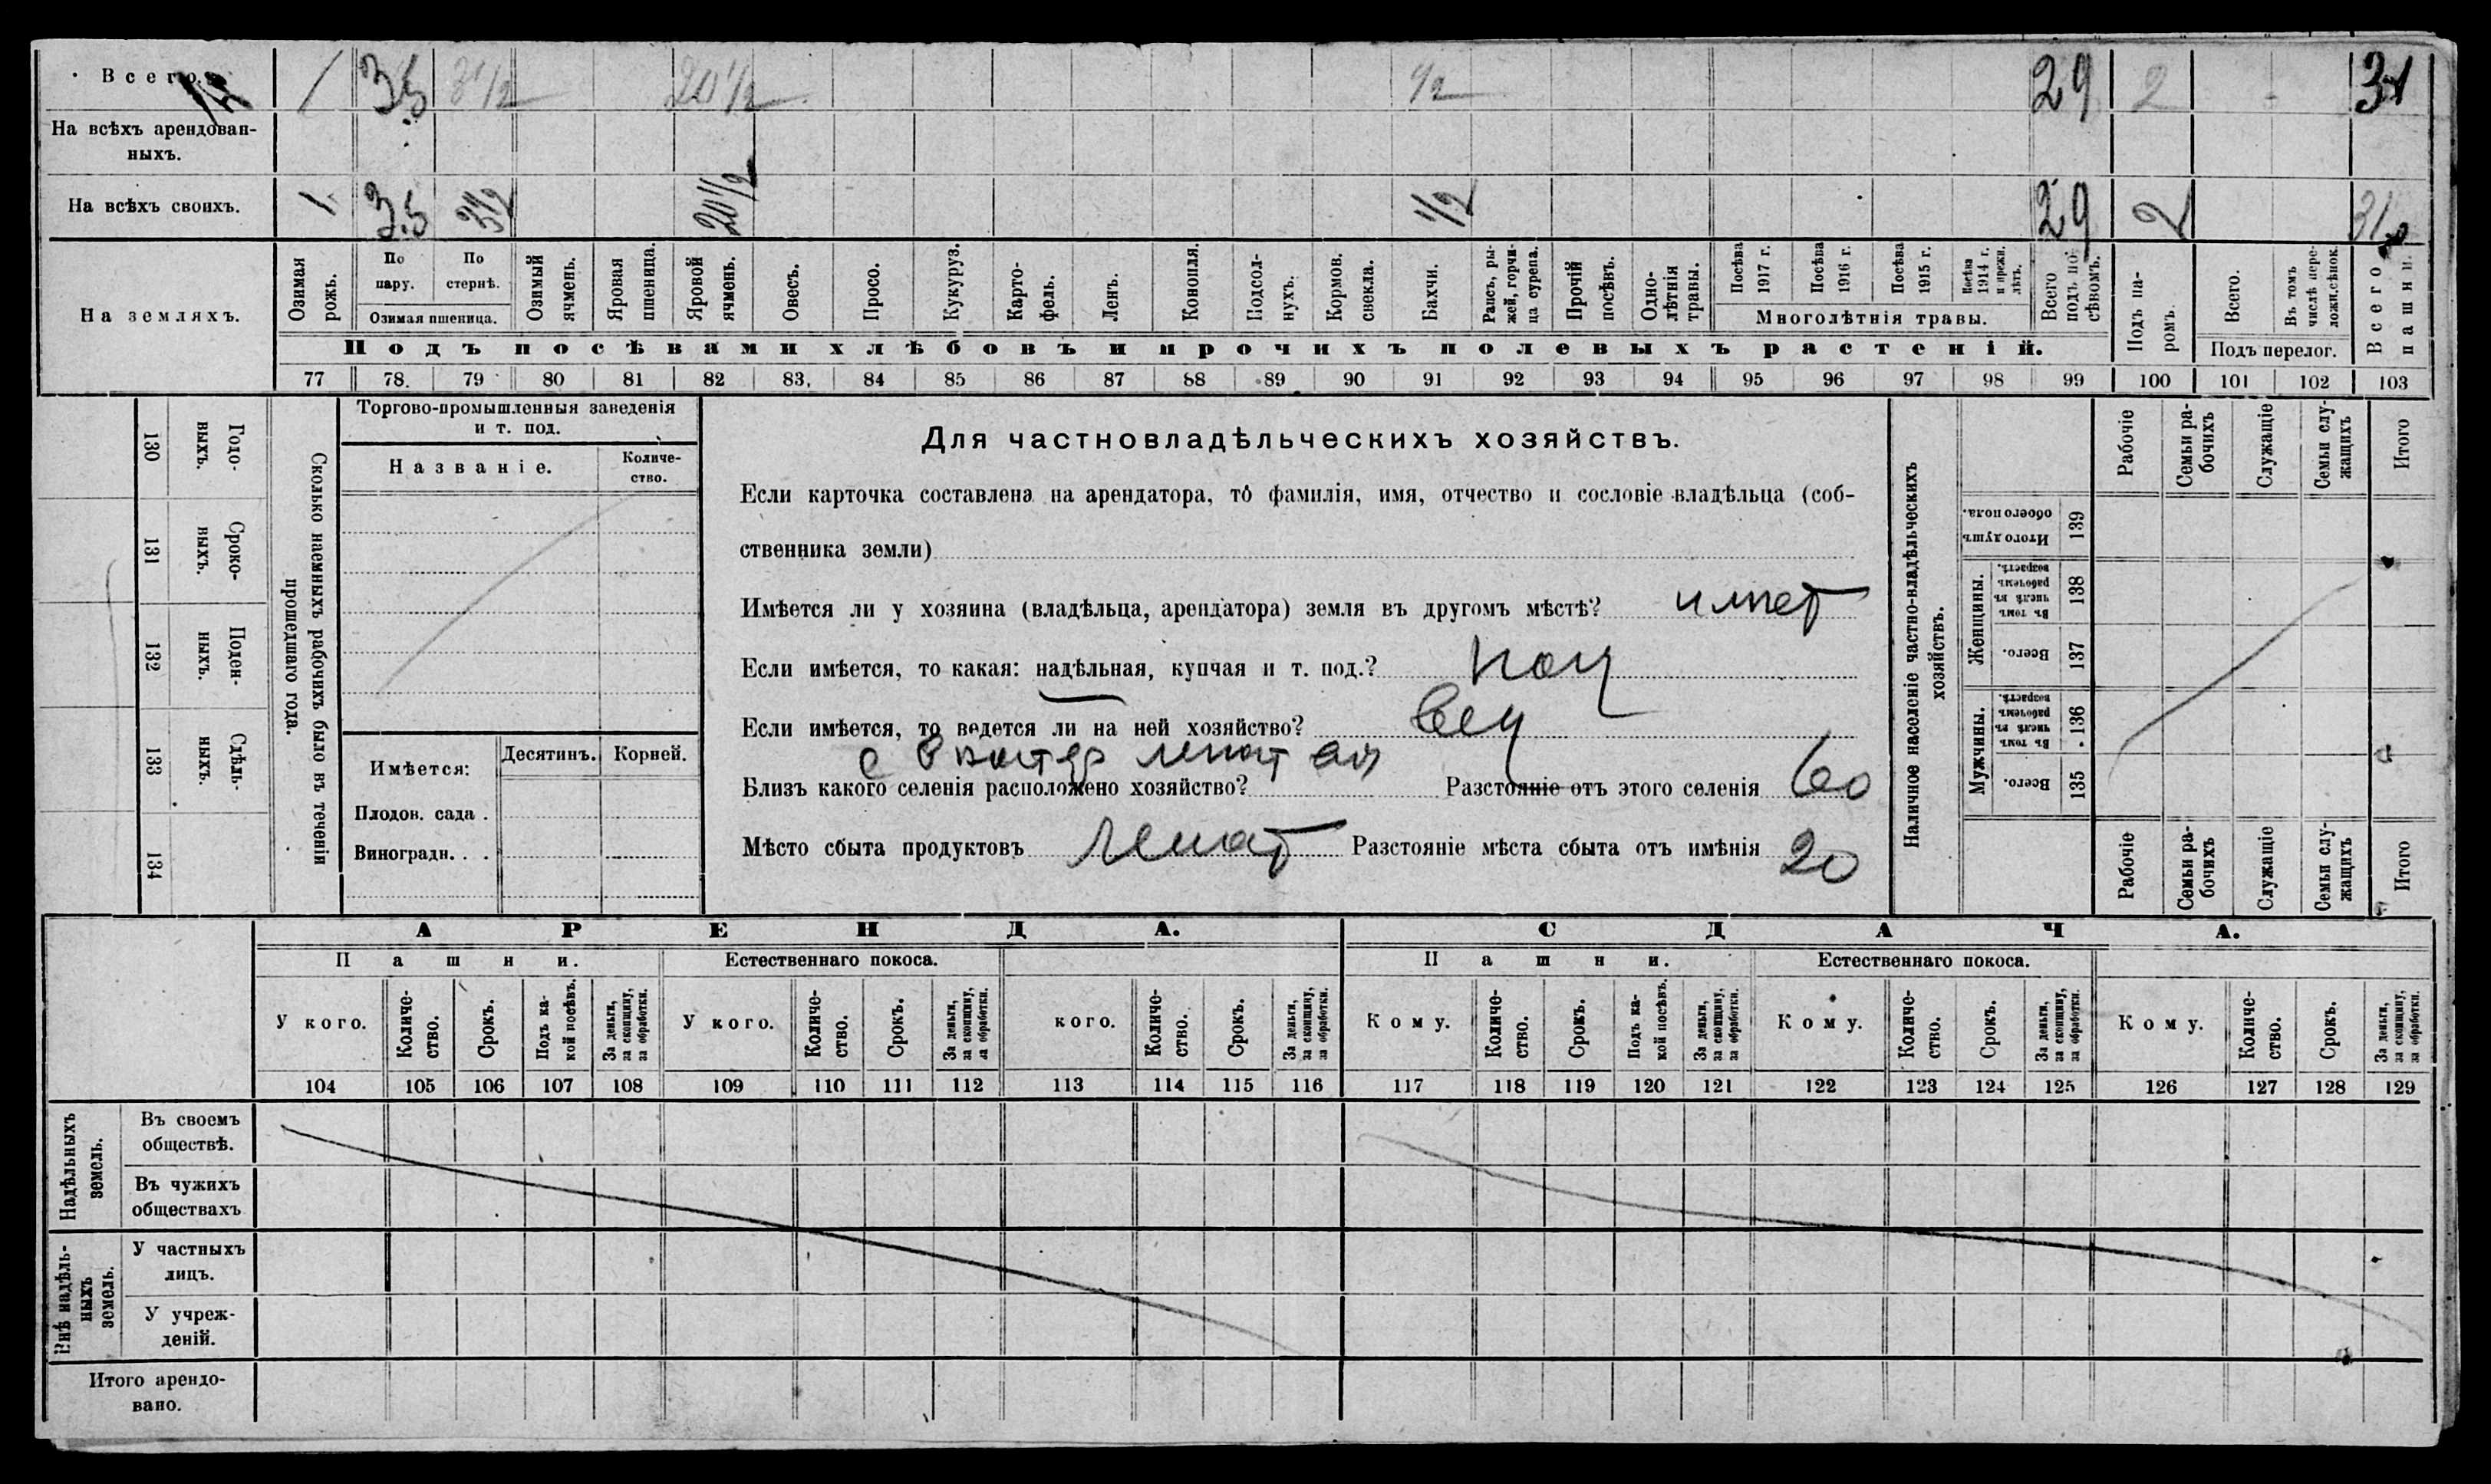 Всего. 1 3.5 3 1/2 20 1/2 1/2 29 2 31
На всѣхъ арендован-
ныхъ.
На всѣхъ своихъ. 1 3.5 3 1/2 20 1/2 1/2 29 2 31
На земляхъ.
Озимая рожь.
По пару.
По стернѣ.
Озимая пшеница.
Озимый ячмень.
Яровая пшеница.
Яровой ячмень.
Овесъ.
Просо.
Кукуруз.
Карто-
фель.
Ленъ.
Конопля.
Подсол-
нухъ.
Кормов. свекла.
Бахчи.
Рапсъ, ры-
жей, горчи-
ца сурепа.
Прочій посѣвъ.
Одно-
лѣтнія травы.
Посѣва 1917 г.
Посѣва 1916 г.
Посѣва 1915 г.
Посѣва 1914 г. и прежн. лѣтъ.
Многолѣтнія травы.
Всего подъ по-
сѣвомъ.
Подъ па-
ромъ.
Всего.
Въ томъ числѣ пере-
ложн. сѣнок.
Подъ перелог.
Всего пашни.
Подъ посѣвами хлѣбовъ и прочихъ полевыхъ растеній.
77 78. 79 80 81 82 83. 84 85 86 87 88 89 90 91 92 93 94 95 96 97 98 99 100 101 102 103
130 131 132 133 134
Годо-
выхъ.
Сроко-
ныхъ.
Поден-
ныхъ.
Сдѣль-
ныхъ.
Сколько наемныхъ рабочихъ было въ теченіи
прошедшаго года.
Торгово-промышленныя заведенія
и т. под.
Названіе. Количе-
ство.
Имѣется: Десятинъ. Корней.
Плодов. сада .
Виноградн. . .
Для частновладѣльческихъ хозяйствъ.
Если карточка составлена на арендатора, то фамилія, имя, отчество и сословіе владѣльца (соб-
ственника земли)
Имѣется ли у хозяина (владѣльца, арендатора) земля въ другомъ мѣстѣ?
Если имѣется, то какая: надѣльная, купчая и т. под.?
Если имѣется, то ведется ли на ней хозяйство?
Близъ какого селенія расположено хозяйство? Разстояніе отъ этого селенія 60
Мѣсто сбыта продуктовъ Разстояніе мѣста сбыта отъ имѣнія 20
Наличное населеніе частно-владѣльческихъ
хозяйствъ.
Рабочіе
Семьи ра-
бочихъ
Служащіе
Семьи слу-
жащихъ
Итого
Итого душъ обоего пола. 139
Женщины.
Въ томъ числѣ въ рабочемъ возрастѣ. 138
Всего. 137
Мужчины.
Въ томъ числѣ въ рабочемъ возрастѣ. 136
Всего. 135
Рабочіе
Семьи ра-
бочихъ
Служащіе
Семьи слу-
жащихъ
Итого
АРЕНДА. СДАЧА.
Пашни. Естественнаго покоса. Пашни. Естественнаго покоса.
У кого.
Количе-
ство.
Срокъ.
Подъ ка-
кой посѣвъ.
За деньги, за скопщину, за обработки.
У кого.
Количе-
ство.
Срокъ.
За деньги, за скопщину, за обработки.
кого.
Количе-
ство.
Срокъ.
За деньги, за скопщину, за обработки.
Кому.
Количе-
ство.
Срокъ.
Подъ ка-
кой посѣвъ.
За деньги, за скопщину, за обработки.
Кому.
Количе-
ство.
Срокъ.
За деньги, за скопщину, за обработки.
Кому.
Количе-
ство.
Срокъ.
За деньги, за скопщину, за обработки.
104 105 106 107 108 109 110 111 112 113 114 115 116 117 118 119 120 121 122 123 124 125 126 127 128 129
Надѣльныхъ земель.
Въ своемъ
обществѣ.
Въ чужихъ
обществахъ
Внѣ надѣль-
ныхъ земель.
У частныхъ
лицъ.
У учреж-
деній.
Итого арендо-
вано.